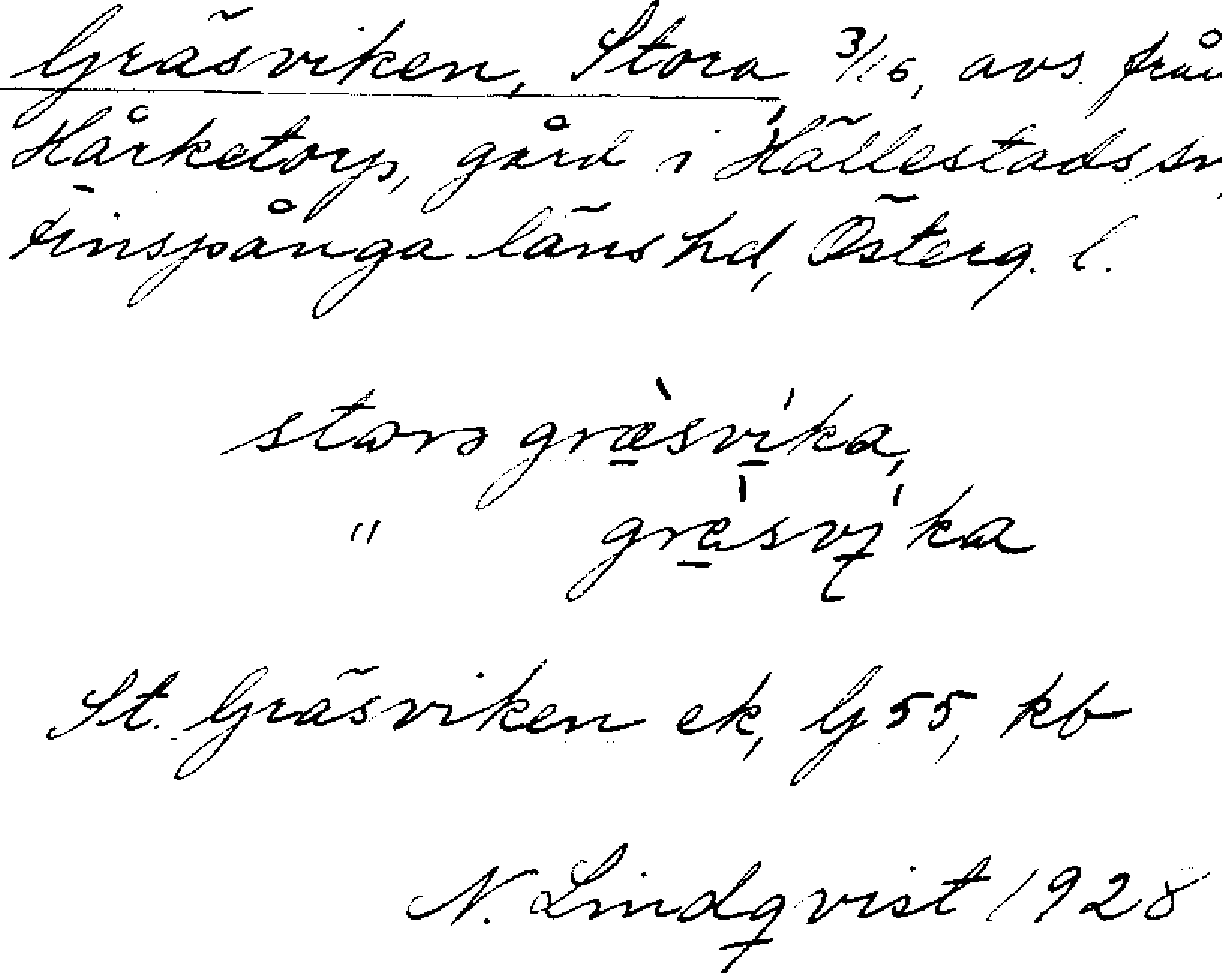 Gräsviken, Stora, 3/16, avs. från
Hårketorp, gård i Hällestads sn,
Finspånga läns hd, Österg. l.
storo græ̀svíka,
" græ̀svíka
St. Gräsviken ek, G 55, kb
N. Lindqvist 1928